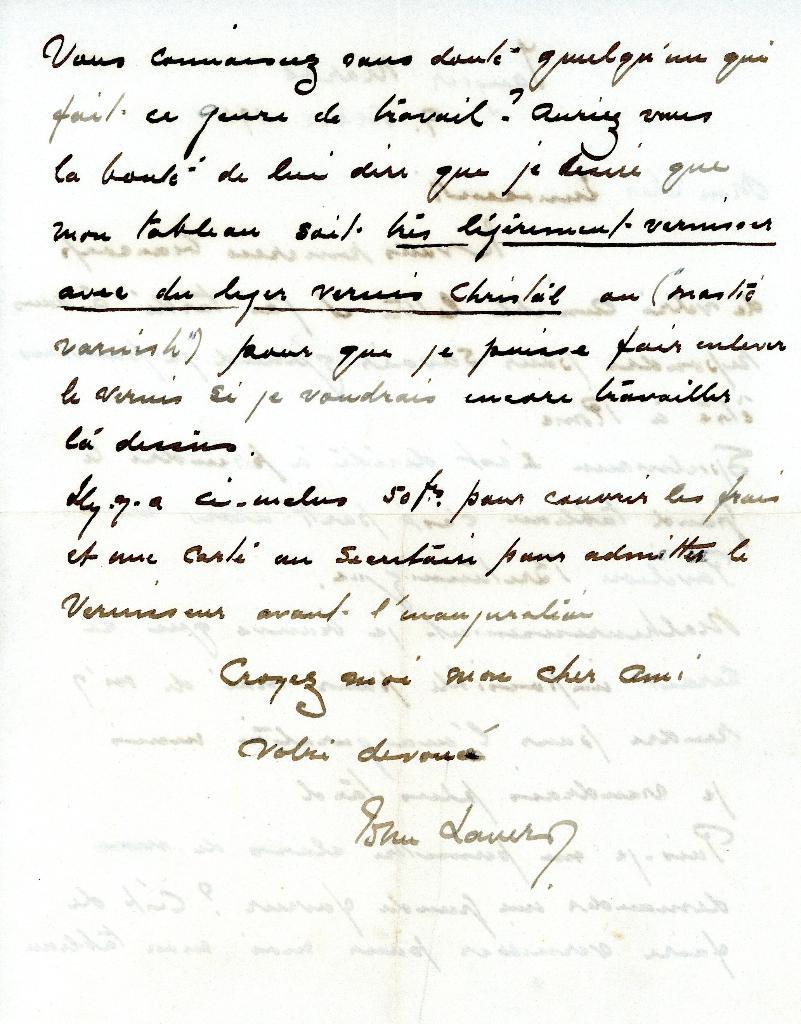 Vous connaissez sans doute quelqu'un qui
fait ce genre de travail? Auriez vous
la bonté de lui dire que je desire que
mon tableau soit très légèrement vernisser
avec du leger vernis Christal ou ("mastic
varnish") pour que je puisse fair enlever
le vernis si je voudrais encore travailler
là dessus.
Il y a ci-inclus 50 frs. pour couvrir les frais
et une carte au Secretaire pour admitter le
Vernisseur avant l'inauguration
Croyez moi mon cher ami
Votre devoué
John Lavery